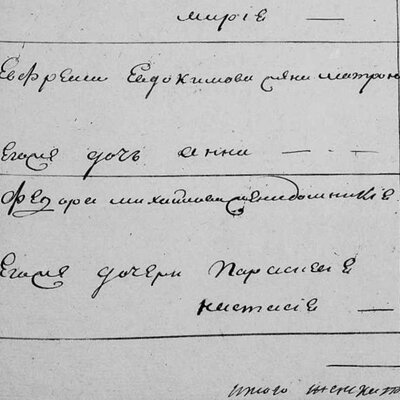 марие —
Евфрема Евдокимова жена матрона
Егоже дочь анна — · —
Федора михайлова жена домникие
Егоже дочери Параскевие
настасие —
итого